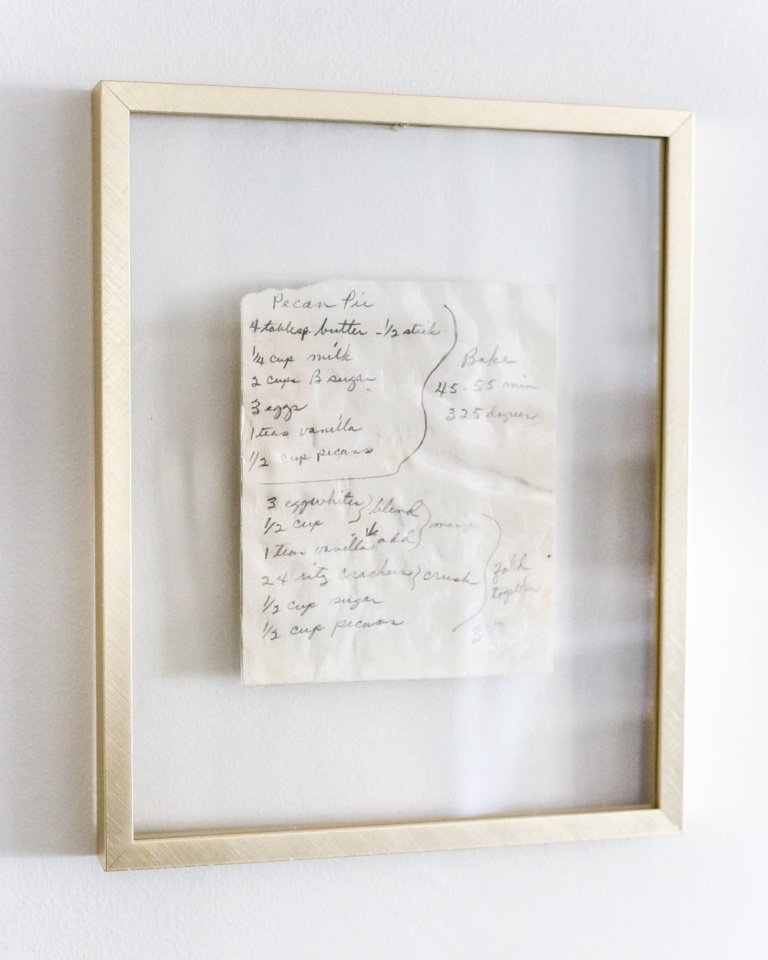 Pecan Pie
4 tablesp butter - 1/2 stick
1/4 cup milk
2 cups B sugar
3 eggs
1 teas vanilla
1/2 cup pecans
Bake
45-55 min
325 degrees
3 eggwhites } blend
1/2 cup
1 teas vanilla add
24 ritz crackers } crush
1/2 cup sugar
1/2 cup pecans
fold
together